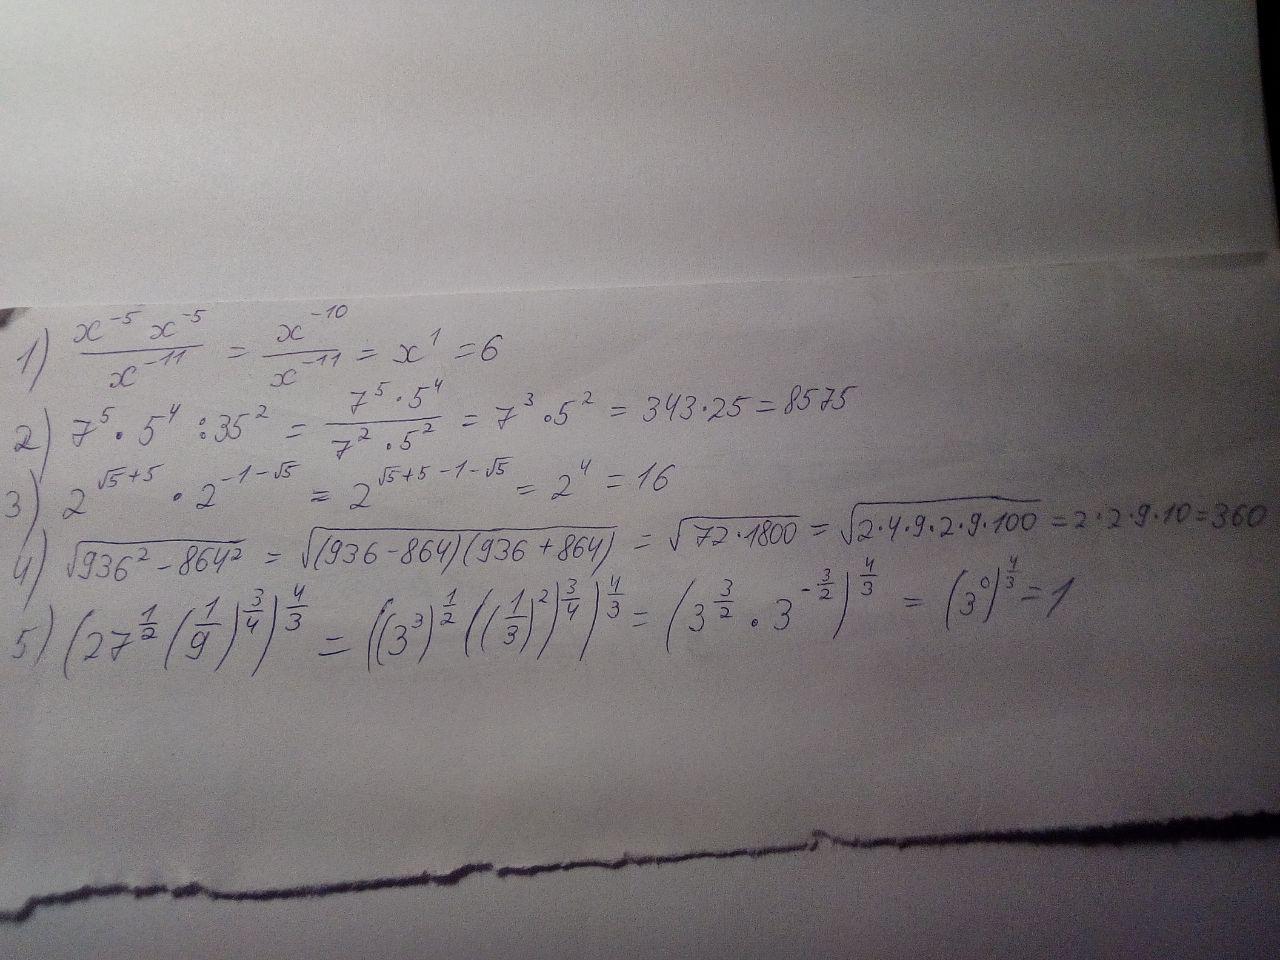 1) x⁻⁵ x⁻⁵ / x⁻¹¹ = x⁻¹⁰ / x⁻¹¹ = x¹ = 6
2) 7⁵ · 5⁴ : 35² = 7⁵ · 5⁴ / 7² · 5² = 7³ · 5² = 343 · 25 = 8575
3) 2^(√5+5) · 2^(-1-√5) = 2^(√5+5-1-√5) = 2⁴ = 16
4) √(936² - 864²) = √((936 - 864)(936 + 864)) = √(72 · 1800) = √(2·4·9·2·9·100) = 2·2·9·10 = 360
5) (27^(1/2) (1/9)^(3/4))^(4/3) = ((3³)^(1/2) ((1/3)²)^(3/4))^(4/3) = (3^(3/2) · 3^(-3/2))^(4/3) = (3⁰)^(4/3) = 1